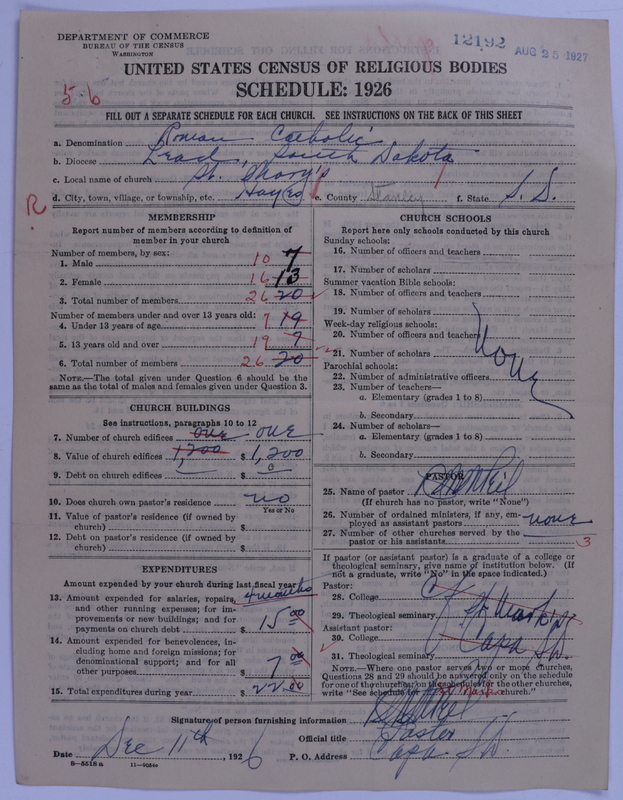 DEPARTMENT OF COMMERCE
BUREAU OF THE CENSUS
WASHINGTON
12192
AUG 25 1927
UNITED STATES CENSUS OF RELIGIOUS BODIES
SCHEDULE: 1926
5-6
FILL OUT A SEPARATE SCHEDULE FOR EACH CHURCH. SEE INSTRUCTIONS ON THE BACK OF THIS SHEET
a. Denomination Roman Catholic
b. Diocese Lead, South Dakota
c. Local name of church St. Mary's
d. City, town, village, or township, etc. Hayes e. County Stanley f. State S. D.
R
MEMBERSHIP
Report number of members according to definition of
member in your church
Number of members, by sex:
1. Male 10 7
2. Female 16 13
3. Total number of members 26 20
Number of members under and over 13 years old:
4. Under 13 years of age 7 19
5. 13 years old and over 19 7
6. Total number of members 26 20
NOTE.—The total given under Question 6 should be the
same as the total of males and females given under Question 3.
CHURCH BUILDINGS
See instructions, paragraphs 10 to 12
7. Number of church edifices one one
8. Value of church edifices 1,200 $ 1,200
9. Debt on church edifices $ 0
10. Does church own pastor's residence no
Yes or No
11. Value of pastor's residence (if owned by
church) $
12. Debt on pastor's residence (if owned by
church) $
EXPENDITURES
Amount expended by your church during last fiscal year
4 months
13. Amount expended for salaries, repairs,
and other running expenses; for im-
provements or new buildings; and for
payments on church debt $ 15 00
14. Amount expended for benevolences, in-
cluding home and foreign missions; for
denominational support; and for all
other purposes $ 7 00
15. Total expenditures during year $ 22.00
CHURCH SCHOOLS
Report here only schools conducted by this church
Sunday schools:
16. Number of officers and teachers
17. Number of scholars
Summer vacation Bible schools:
18. Number of officers and teachers
19. Number of scholars
Week-day religious schools:
20. Number of officers and teachers
21. Number of scholars
None
Parochial schools:
22. Number of administrative officers
23. Number of teachers—
a. Elementary (grades 1 to 8)
b. Secondary
24. Number of scholars—
a. Elementary (grades 1 to 8)
b. Secondary
PASTOR
25. Name of pastor
(If church has no pastor, write "None")
26. Number of ordained ministers, if any, em-
ployed as assistant pastors none
27. Number of other churches served by the
pastor or his assistants 3
If pastor (or assistant pastor) is a graduate of a college or
theological seminary, give name of institution below. (If
not a graduate, write "No" in the space indicated.)
Pastor:
28. College
29. Theological seminary
Assistant pastor:
30. College Capa S.D.
31. Theological seminary
NOTE.—Where one pastor serves two or more churches,
Questions 28 and 29 should be answered only on the schedule
for one of the churches; on the schedules for the other churches,
write "See schedule for church."
Signature of person furnishing information
Official title Pastor
Date Dec 11th, 1926 P. O. Address Capa S.D.
8-5518 a 11-9054a